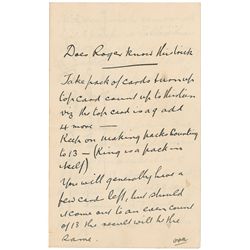 Does Roger know this trick
Take pack of cards turn up
top card count up to thirteen
viz the top card is a 9 add
4 more —
Keep on making packs counting
to 13 – (King is a pack in
itself)
You will generally have a
few cards left, but should
it come out to an even count
of 13 the result will be the
same.
over